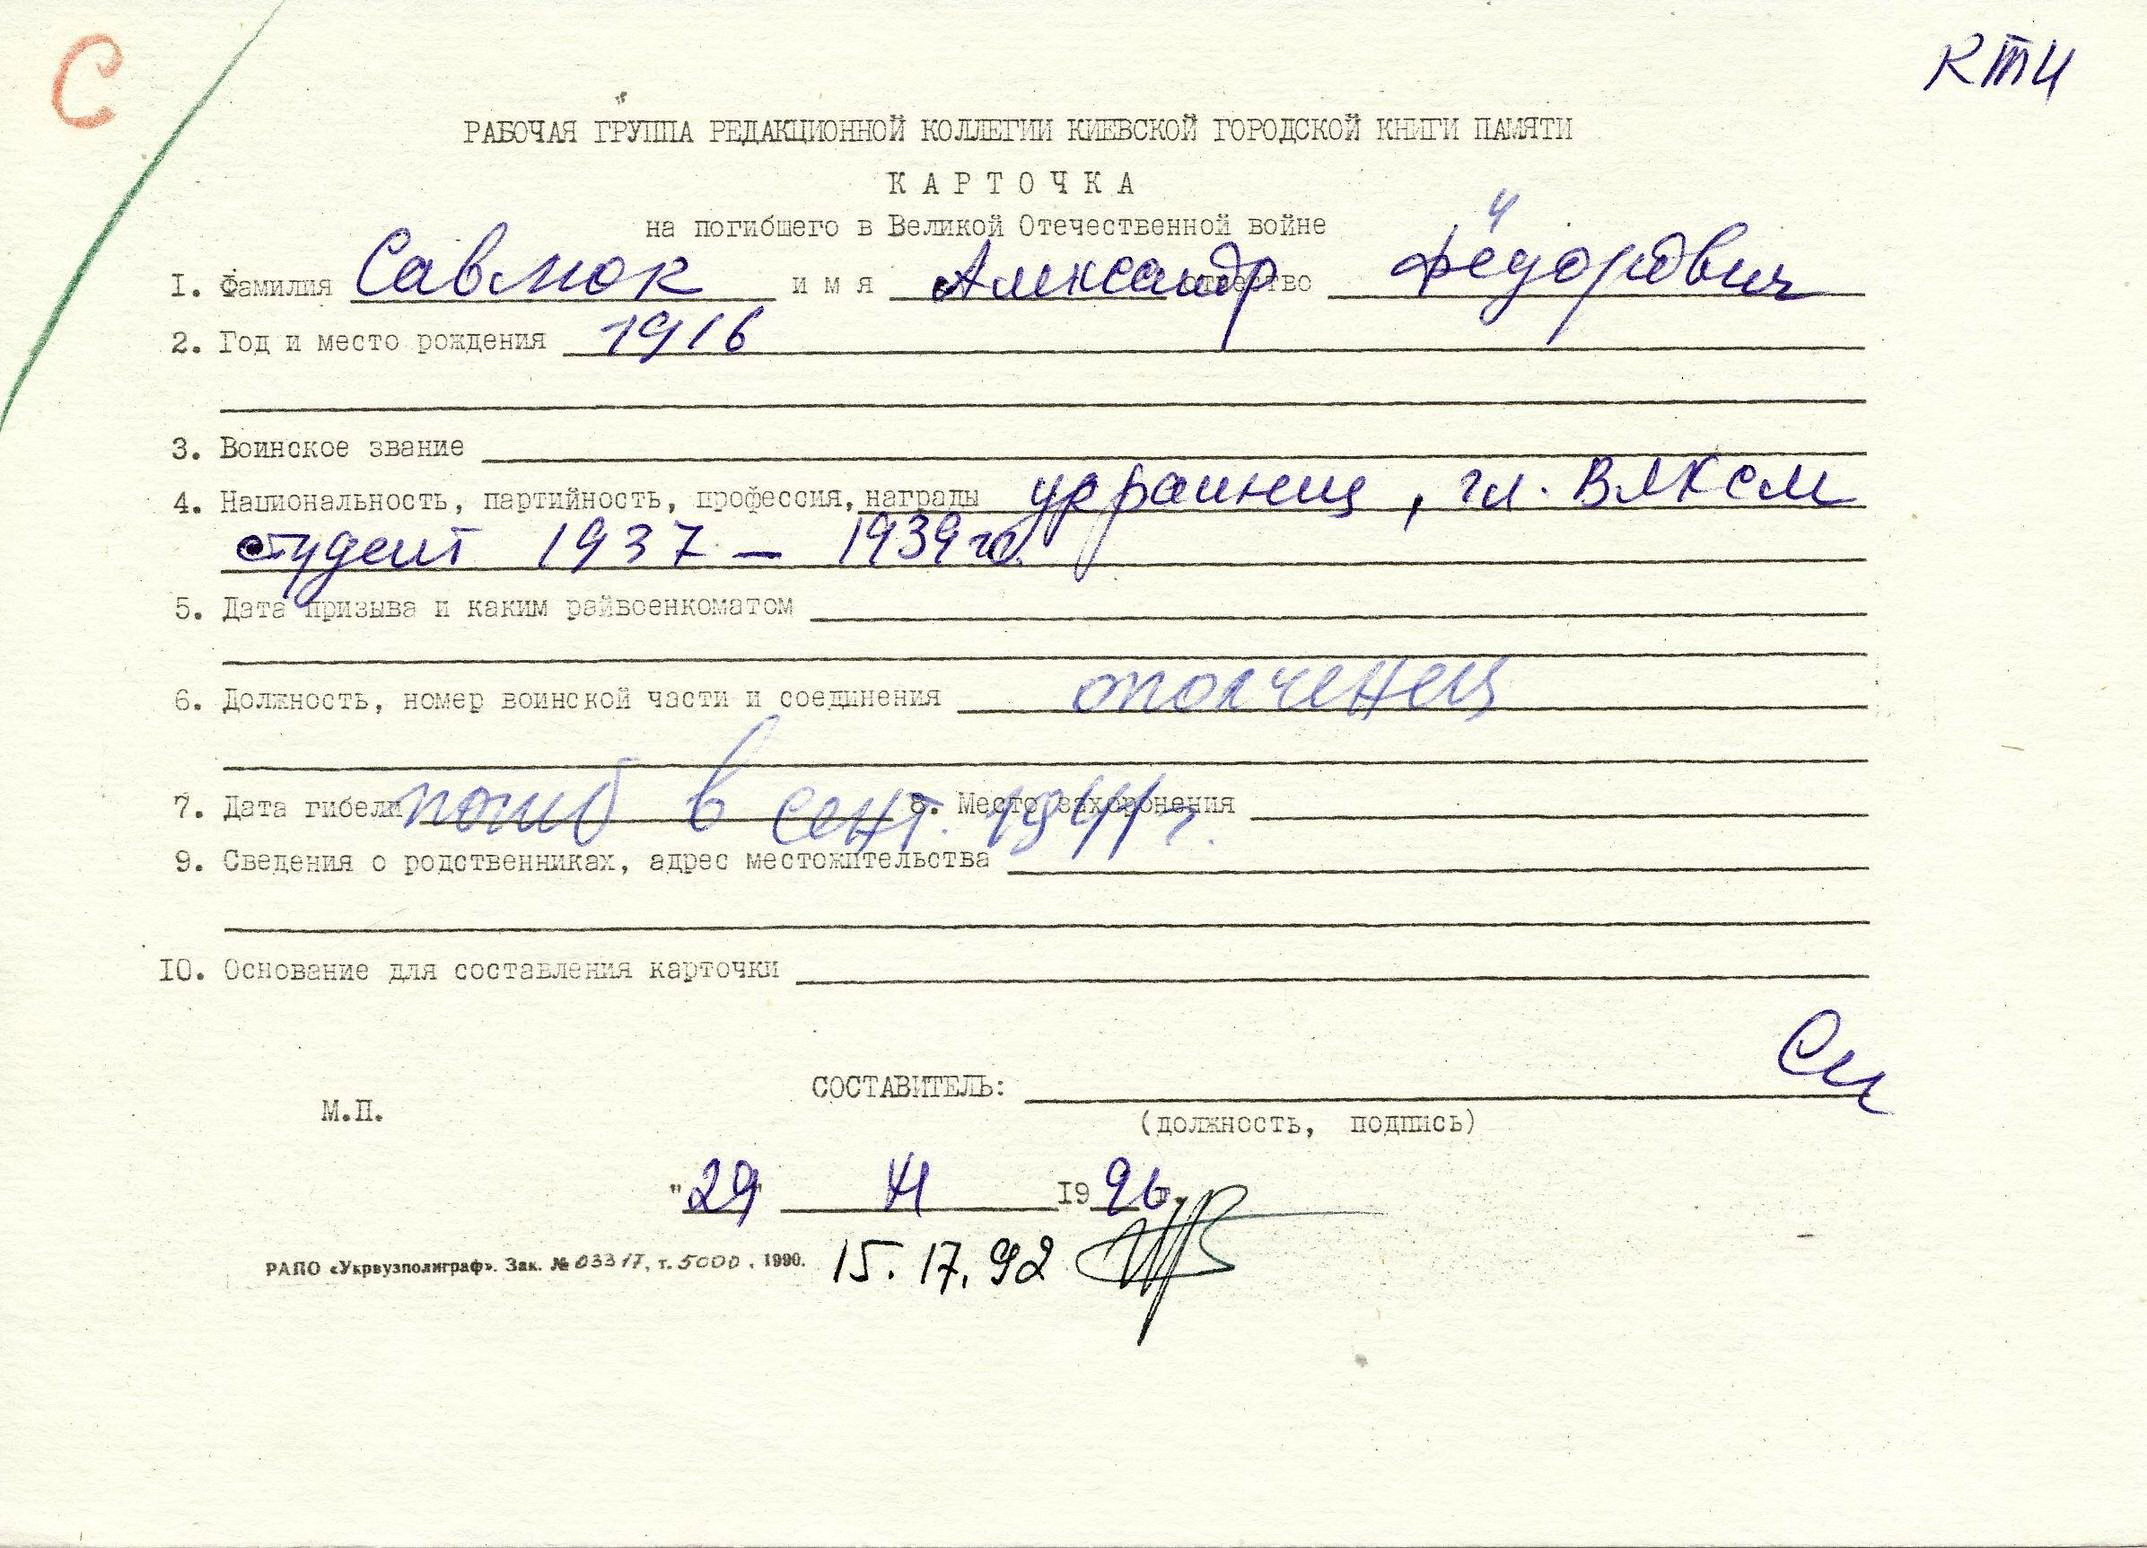 С
КТИ
РАБОЧАЯ ГРУППА РЕДАКЦИОННОЙ КОЛЛЕГИИ КИЕВСКОЙ ГОРОДСКОЙ КНИГИ ПАМЯТИ
КАРТОЧКА
на погибшего в Великой Отечественной войне
1. Фамилия Савлюк имя Александр отчество Фёдорович
2. Год и место рождения 1916
3. Воинское звание
4. Национальность, партийность, профессия, награды украинец, чл. ВЛКСМ
студент 1937 – 1939 гг.
5. Дата призыва и каким райвоенкоматом
6. Должность, номер воинской части и соединения ополченец
7. Дата гибели погиб в сент. 1941 г. 8. Место захоронения
9. Сведения о родственниках, адрес местожительства
10. Основание для составления карточки
СОСТАВИТЕЛЬ:
М.П.
(должность, подпись)
"29" 1996
РАПО «Укрвузполиграф». Зак. № 03317, т. 5000, 1990. 15.17.92